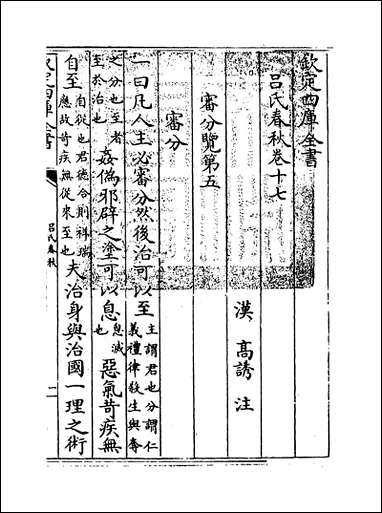 欽定四庫全書
呂氏春秋卷十七
漢 高誘 注
審分覽第五
審分
一曰凡人主必審分然後治可以至主謂君也分謂仁義禮律殺生與奪
之分也至者至於治也姦偽邪辟之塗可以息息滅也惡氣苛疾無
自至自從也君德合則祥瑞應故苛疾無從來至也夫治身與治國一理之術
欽定四庫全書
呂氏春秋